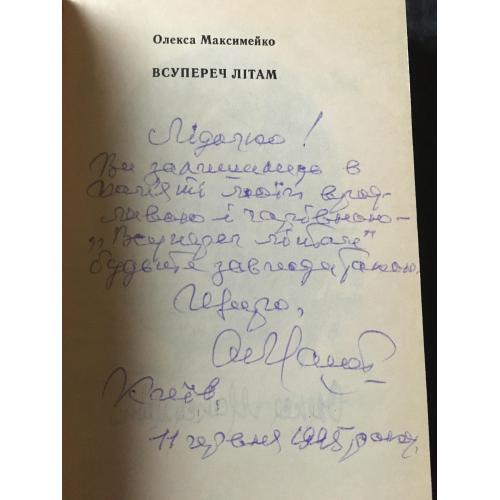 Олекса Максимейко
ВСУПЕРЕЧ ЛІТАМ
Лідочко!
Ви залишились в
пам'яті моїй врод-
ливою і чарівною –
„Всупереч літам"
будьте завжди такою.
Щиро,
Київ,
11 червня 1995 року.